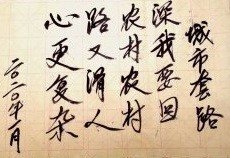 城市套路
深我要回
农村农村
路又滑人
心更复杂
二〇二〇年一月